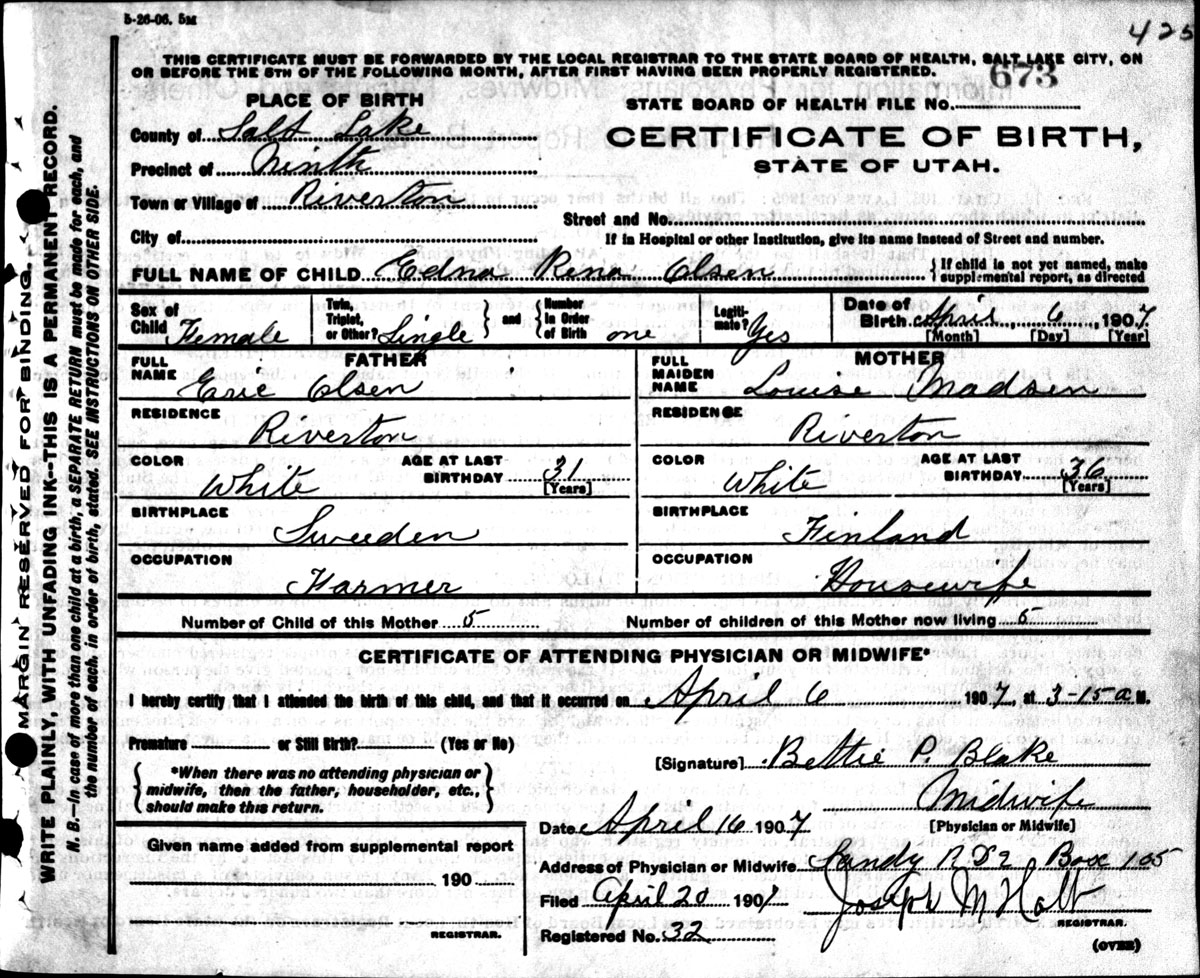 5-26-06. 5M
425
THIS CERTIFICATE MUST BE FORWARDED BY THE LOCAL REGISTRAR TO THE STATE BOARD OF HEALTH, SALT LAKE CITY, ON
OR BEFORE THE 5TH OF THE FOLLOWING MONTH, AFTER FIRST HAVING BEEN PROPERLY REGISTERED.
673
STATE BOARD OF HEALTH FILE NO.
CERTIFICATE OF BIRTH,
STATE OF UTAH.
PLACE OF BIRTH
County of Salt Lake
Precinct of Ninth
Town or Village of Riverton
Street and No.
City of
If in Hospital or other Institution, give its name instead of Street and number.
FULL NAME OF CHILD Edna Rena Olsen { If child is not yet named, make supplemental report, as directed
Sex of Child Female Twin, Triplet, or Other? Single } and { Number in Order of Birth one Legitimate? Yes Date of Birth April 6, 1907
[Month] [Day] [Year]
FATHER
FULL NAME Eric Olsen
RESIDENCE
Riverton
COLOR White AGE AT LAST BIRTHDAY 31 [Years]
BIRTHPLACE
Sweeden
OCCUPATION
Farmer
MOTHER
FULL MAIDEN NAME Louise Madsen
RESIDENCE
Riverton
COLOR White AGE AT LAST BIRTHDAY 36 [Years]
BIRTHPLACE
Finland
OCCUPATION
Housewife
Number of Child of this Mother 5 Number of children of this Mother now living 5
CERTIFICATE OF ATTENDING PHYSICIAN OR MIDWIFE*
I hereby certify that I attended the birth of this child, and that it occurred on April 6 1907, at 3-15 a M.
Premature or Still Birth? (Yes or No)
*When there was no attending physician or
midwife, then the father, householder, etc.,
should make this return.
[Signature] Bettie P. Blake
Midwife
[Physician or Midwife]
Date April 16 1907
Address of Physician or Midwife Sandy R.D2 Box 105
Filed April 20 1907 Joseph M Holt
REGISTRAR.
Registered No. 32
(OVER)
Given name added from supplemental report
190
REGISTRAR.
MARGIN RESERVED FOR BINDING.
WRITE PLAINLY, WITH UNFADING INK--THIS IS A PERMANENT RECORD.
N. B.--In case of more than one child at a birth, a SEPARATE RETURN must be made for each, and
the number of each, in order of birth, stated. SEE INSTRUCTIONS ON OTHER SIDE.